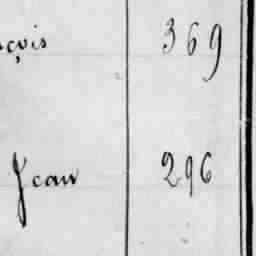 nçois 369
Jean 296